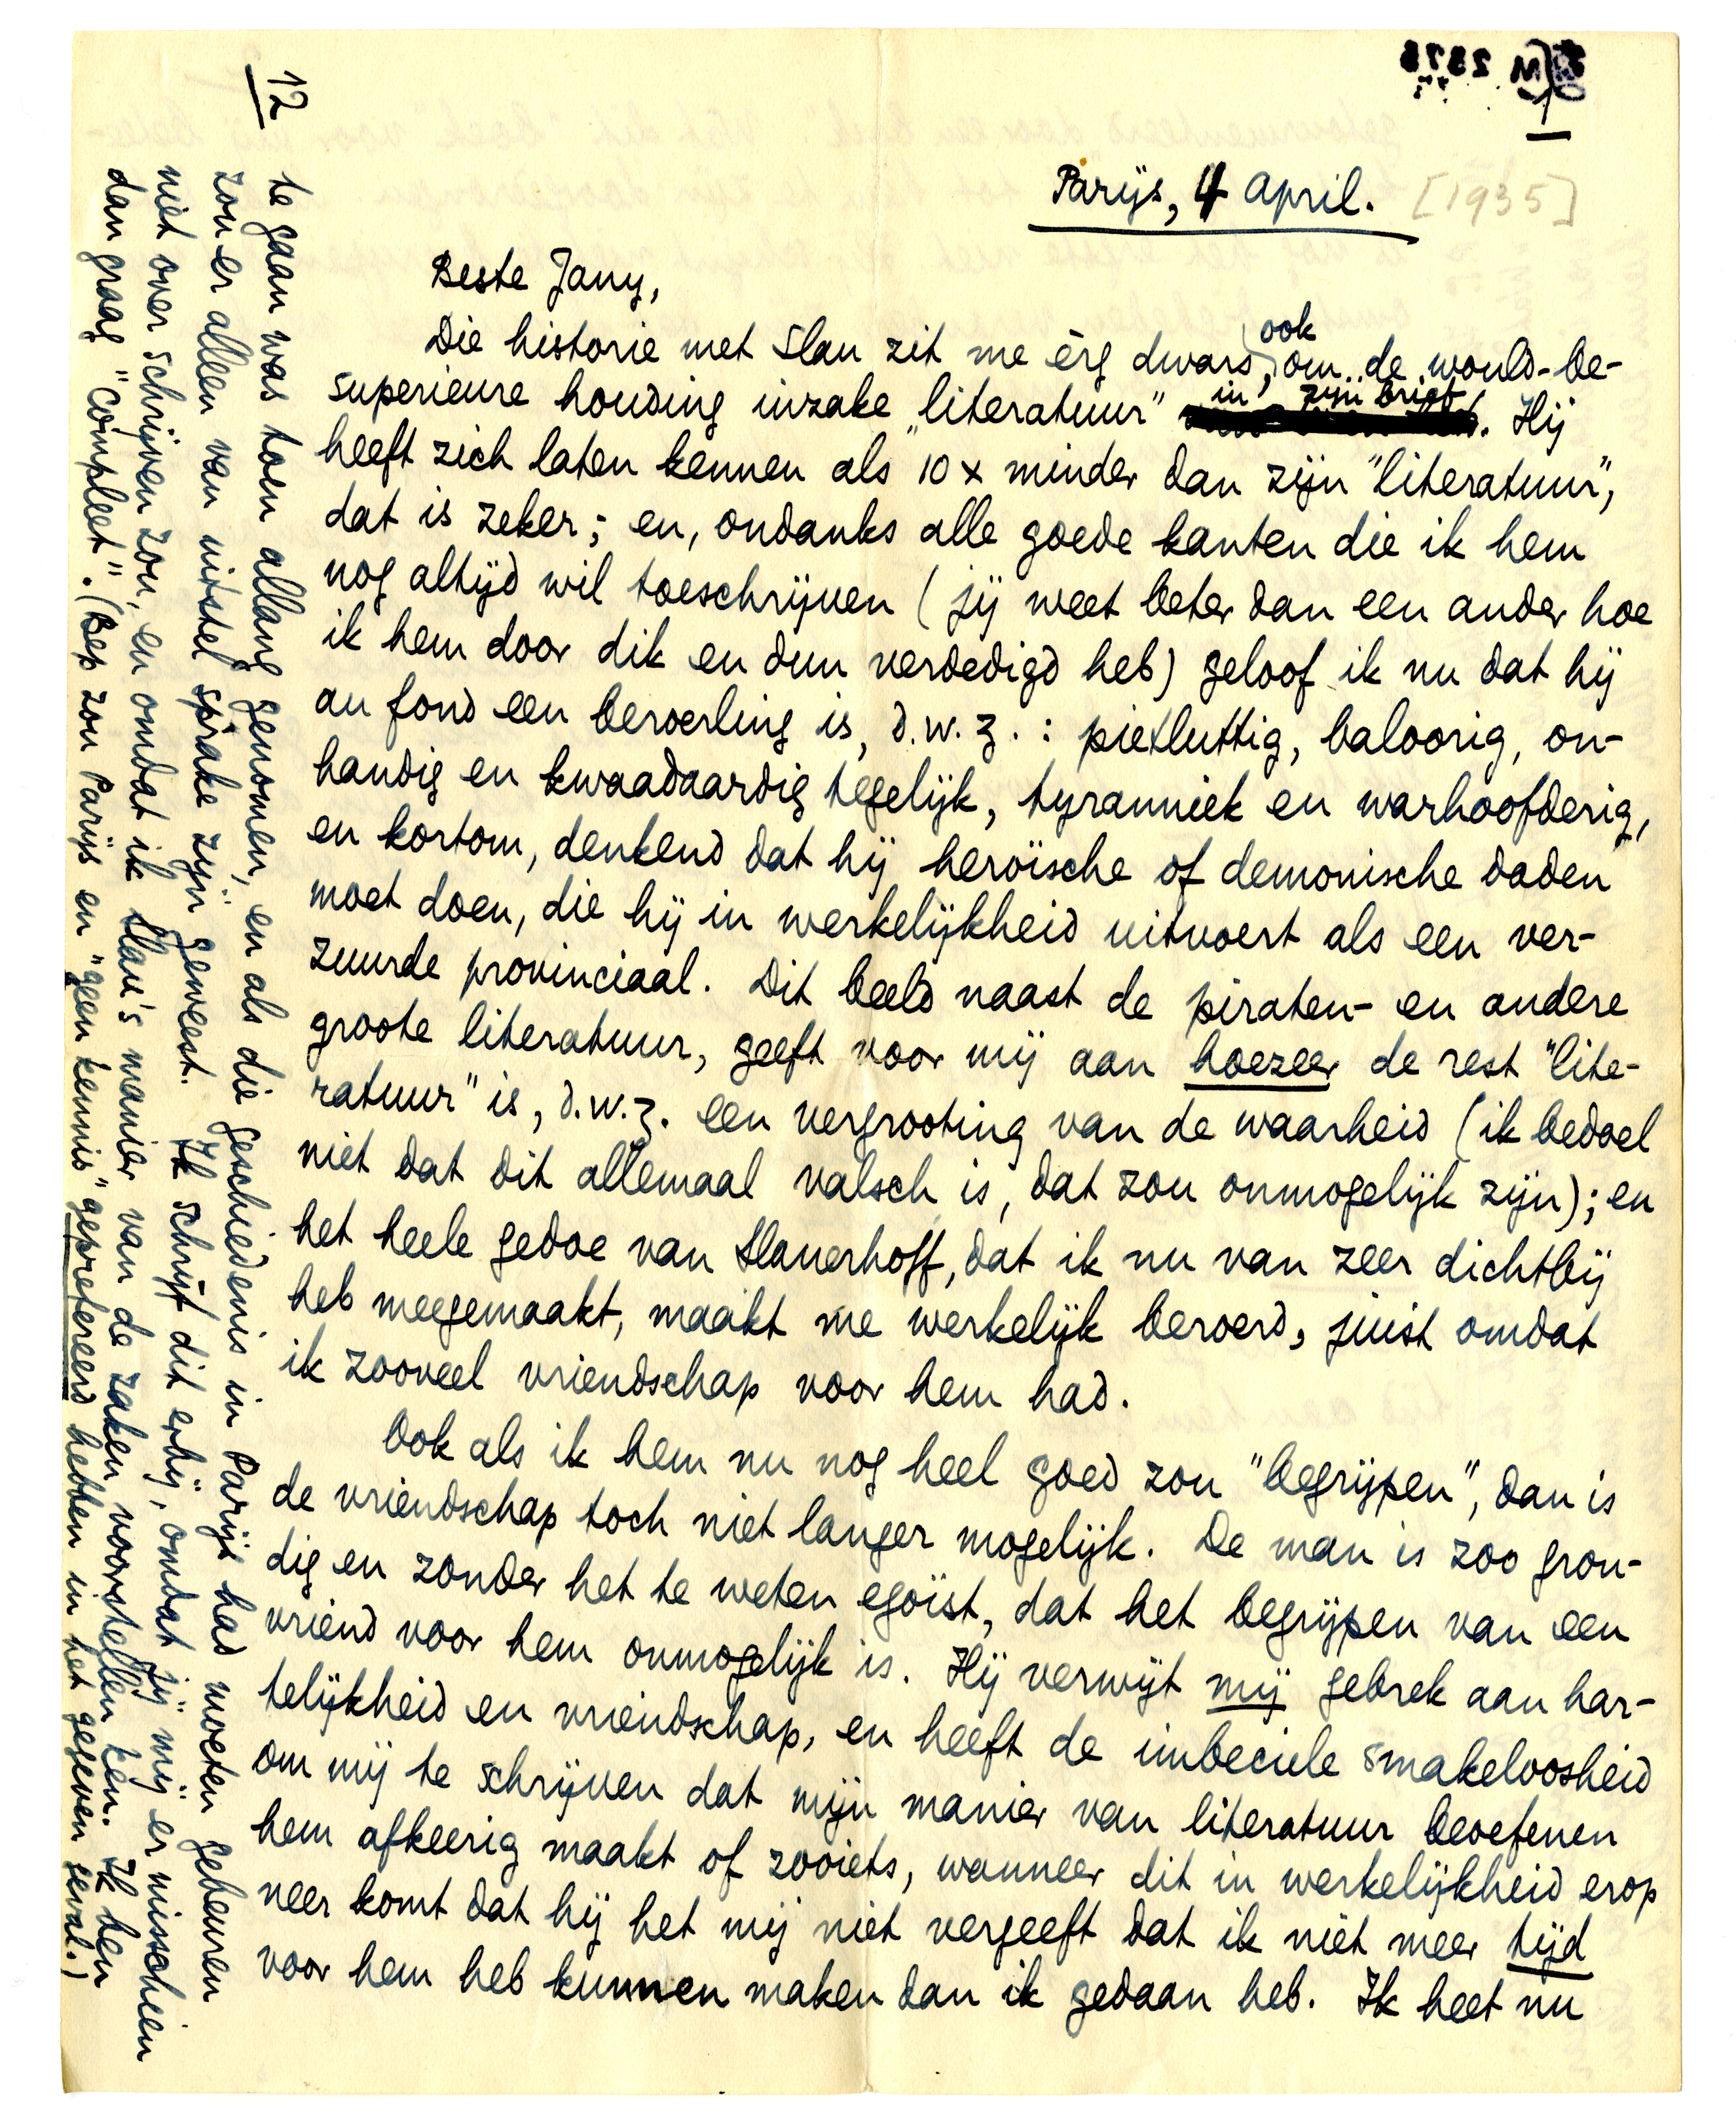 1
Parijs, 4 April. [1935]
Beste Jany,
Die historie met Slau zit me èrg dwars, ook om de would-be-
superieure houding inzake "literatuur" in zijn brief. Hij
heeft zich laten kennen als 10 x minder dan zijn "literatuur",
dat is zeker; en, ondanks alle goede kanten die ik hem
nog altijd wil toeschrijven (jij weet beter dan een ander hoe
ik hem door dik en dun verdedigd heb) geloof ik nu dat hij
au fond een beroerling is, d.w.z.: pietluttig, baloorig, on-
handig en kwaadaardig tegelijk, tyranniek en warhoofderig,
en kortom, denkend dat hij heroïsche of demonische daden
moet doen, die hij in werkelijkheid uitvoert als een ver-
zuurde provinciaal. Dit beeld naast de piraten- en andere
groote literatuur, geeft voor mij aan hoezeer de rest "lite-
ratuur" is, d.w.z. een vergrooting van de waarheid (ik bedoel
niet dat dit allemaal valsch is, dat zou onmogelijk zijn); en
het heele gedoe van Slauerhoff, dat ik nu van zeer dichtbij
heb meegemaakt, maakt me werkelijk beroerd, juist omdat
ik zooveel vriendschap voor hem had.
Ook als ik hem nu nog heel goed zou "begrijpen", dan is
de vriendschap toch niet langer mogelijk. De man is zoo gron-
dig en zonder het te weten egoïst, dat het begrijpen van een
vriend voor hem onmogelijk is. Hij verwijt mij gebrek aan har-
telijkheid en vriendschap, en heeft de imbeciele smakeloosheid
om mij te schrijven dat mijn manier van literatuur beoefenen
hem afkeerig maakt of zooiets, wanneer dit in werkelijkheid erop
neer komt dat hij het mij niet vergeeft dat ik niet meer tijd
voor hem heb kunnen maken dan ik gedaan heb. Ik heet nu
12
te gaan was toen allang genomen, en als die geschiedenis in Parijs had moeten gebeuren
zou er alleen van uitstel sprake zijn geweest. Ik schrijf dit erbij, omdat jij mij er misschien
niet over schrijven zou, en omdat ik Slau's manier van de zaken voorstellen ken. Ik ben
dan graag "compleet". (Bep zou Parijs en "geen kennis" geprefereerd hebben in het gegeven geval.)